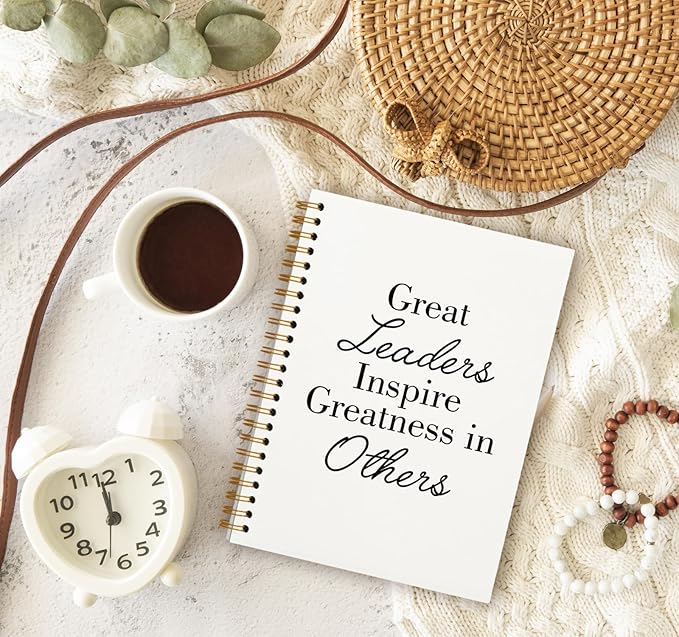 Great
Leaders
Inspire
Greatness in
Others
12
1
2
3
4
5
6
7
8
9
10
11